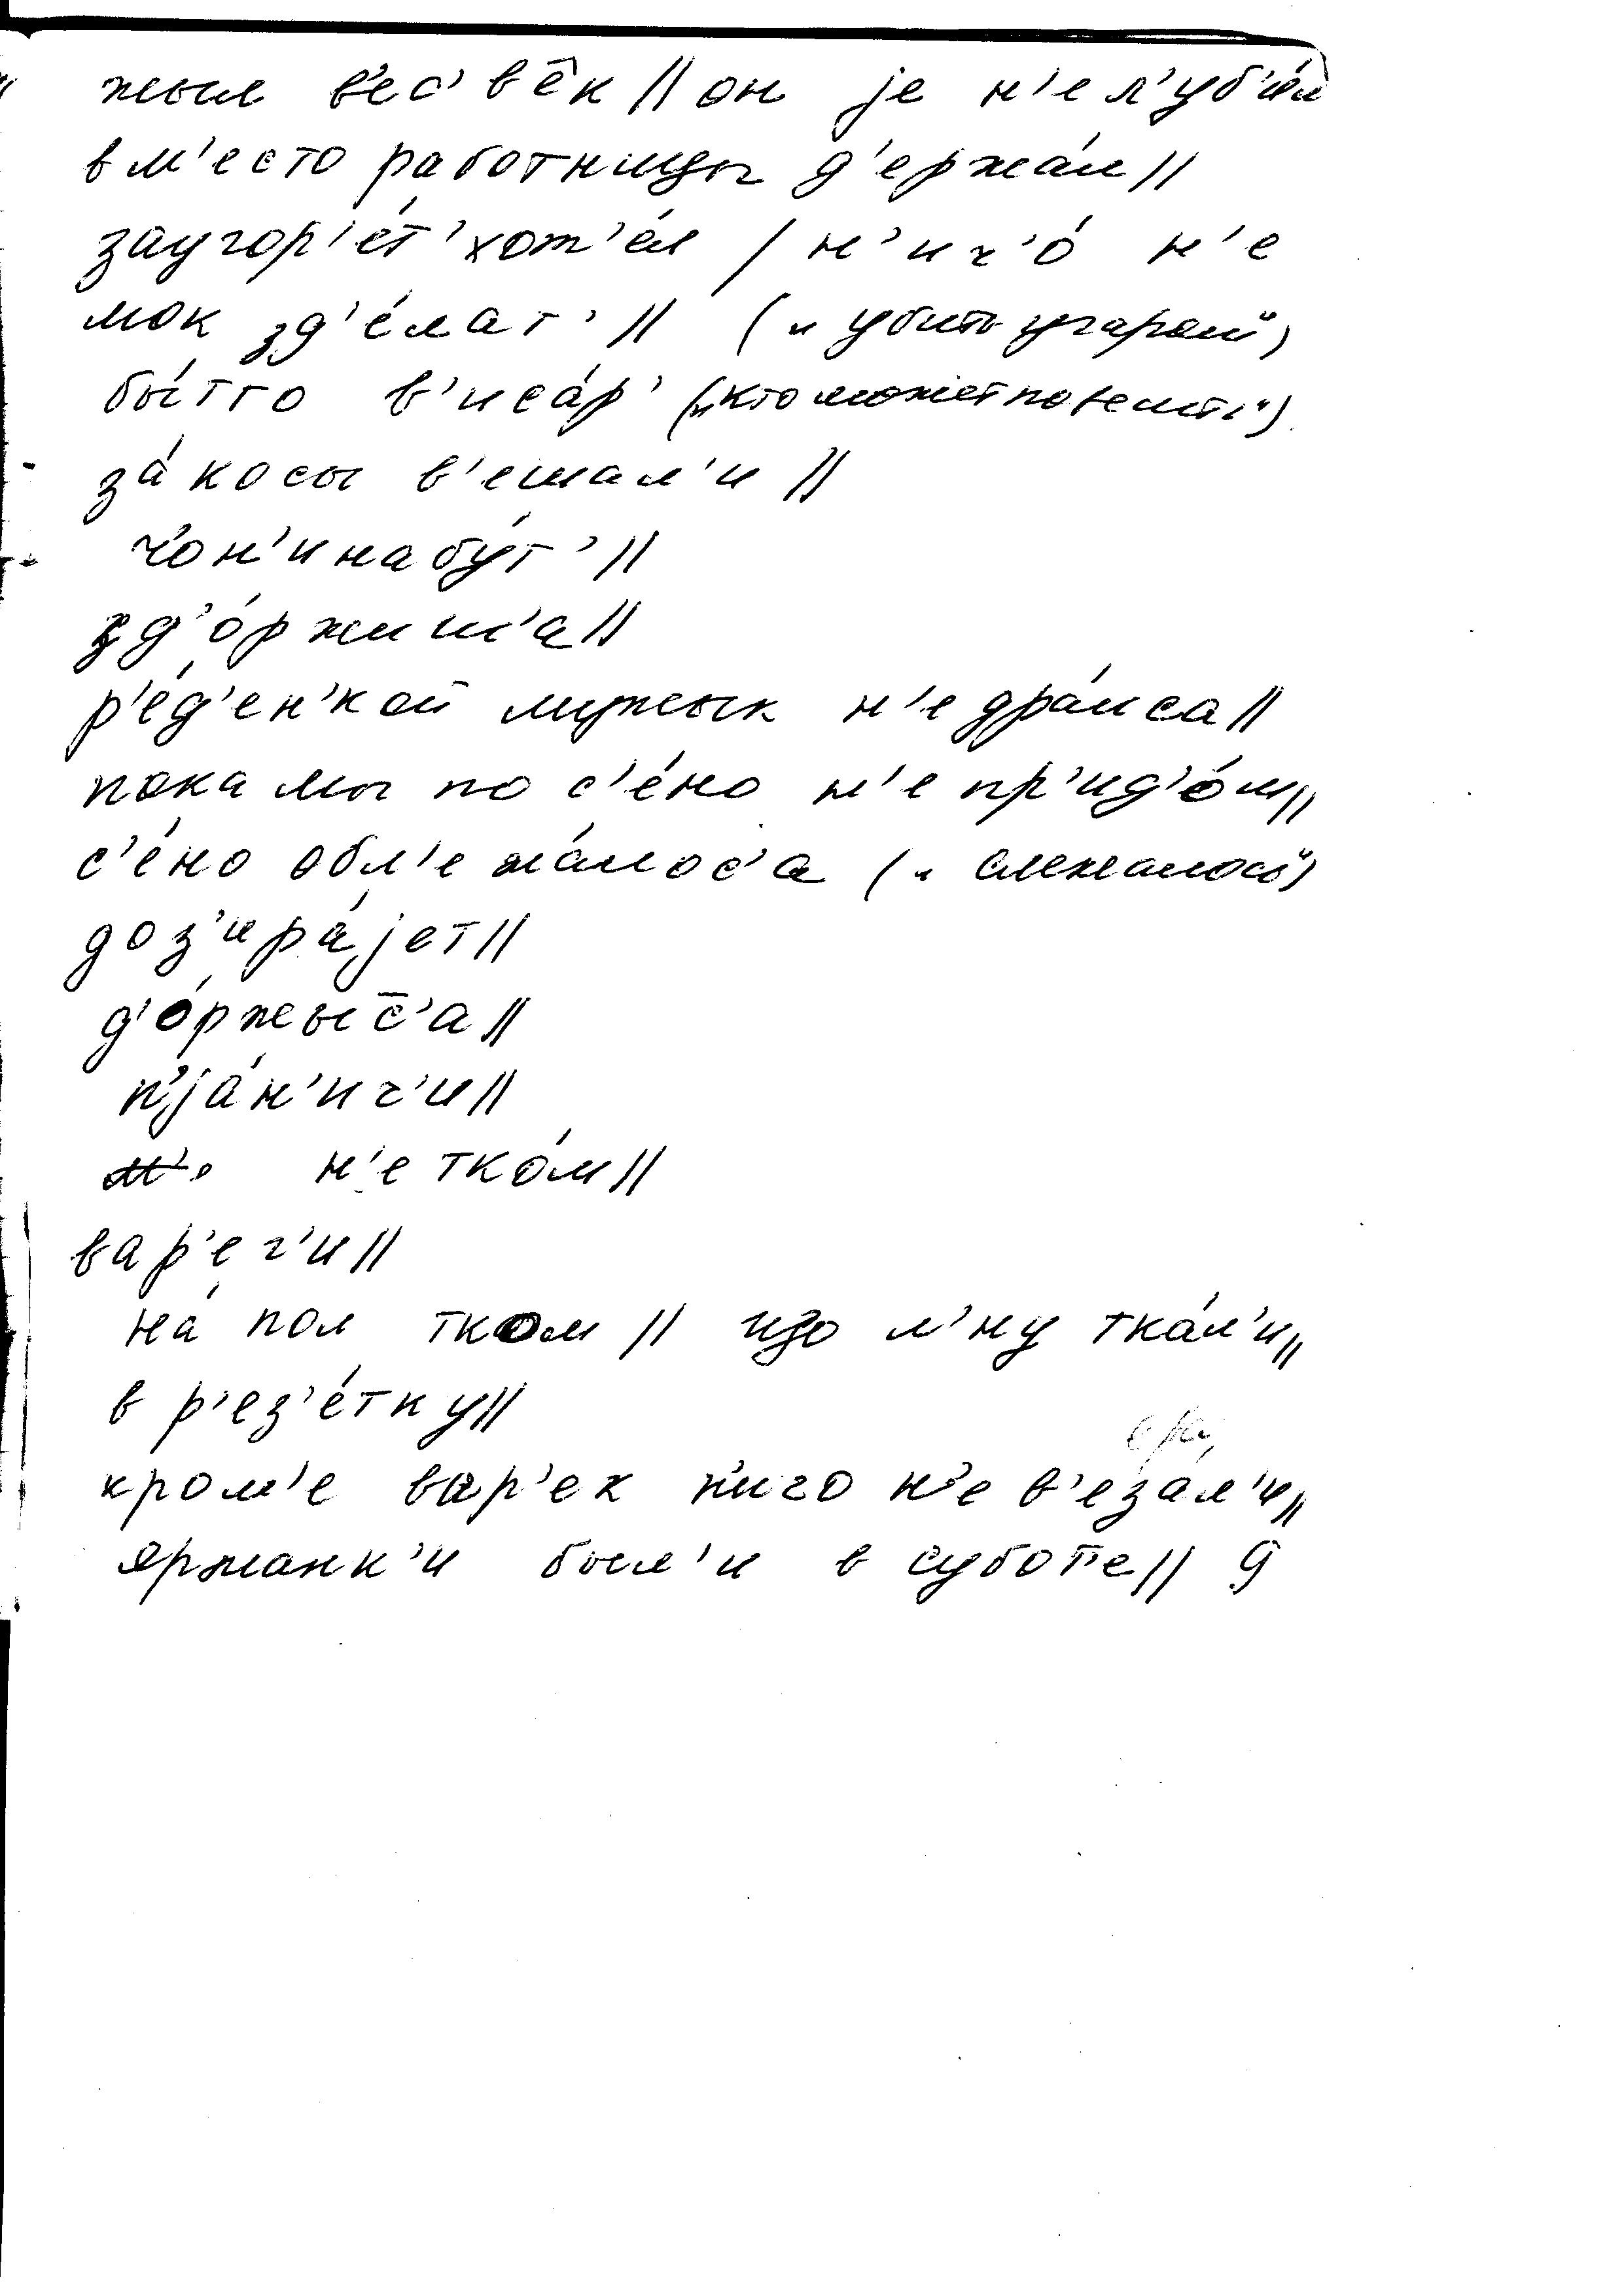 жыл в'ес' в е̂к // он jе н'е л'уб'и́л
вм'есто работницы д'ержа́л //
заугор'е́т' хот'е́л / н'ич'о́ н'е
мок зд'е́лат' // („убить угаром“)
бы́тго в'иса́р' („кто может повесить“)
за́ косы в'ешал'и //
ч'он'инабу́т' //
зд'о́ржиш'а //
р'е́д'ен'кой мужык н'е дра́лса //
пока мы по с'е́но н'е пр'ид'о́м //
с'е́но обл'ежа́лос'а („слежалось“)
доз'ира́jет //
д'о́ржыс̄'а //
п'jа́н'ич'и //
н'е тко́м //
вар'ег'и //
на́ пол тком // що л'ну тка́л'и //
в р'ез'е́тку //
кром'е вар'ек н'иго н'е в'еза́л'и //
яржанк'и был'и в суботе // 9